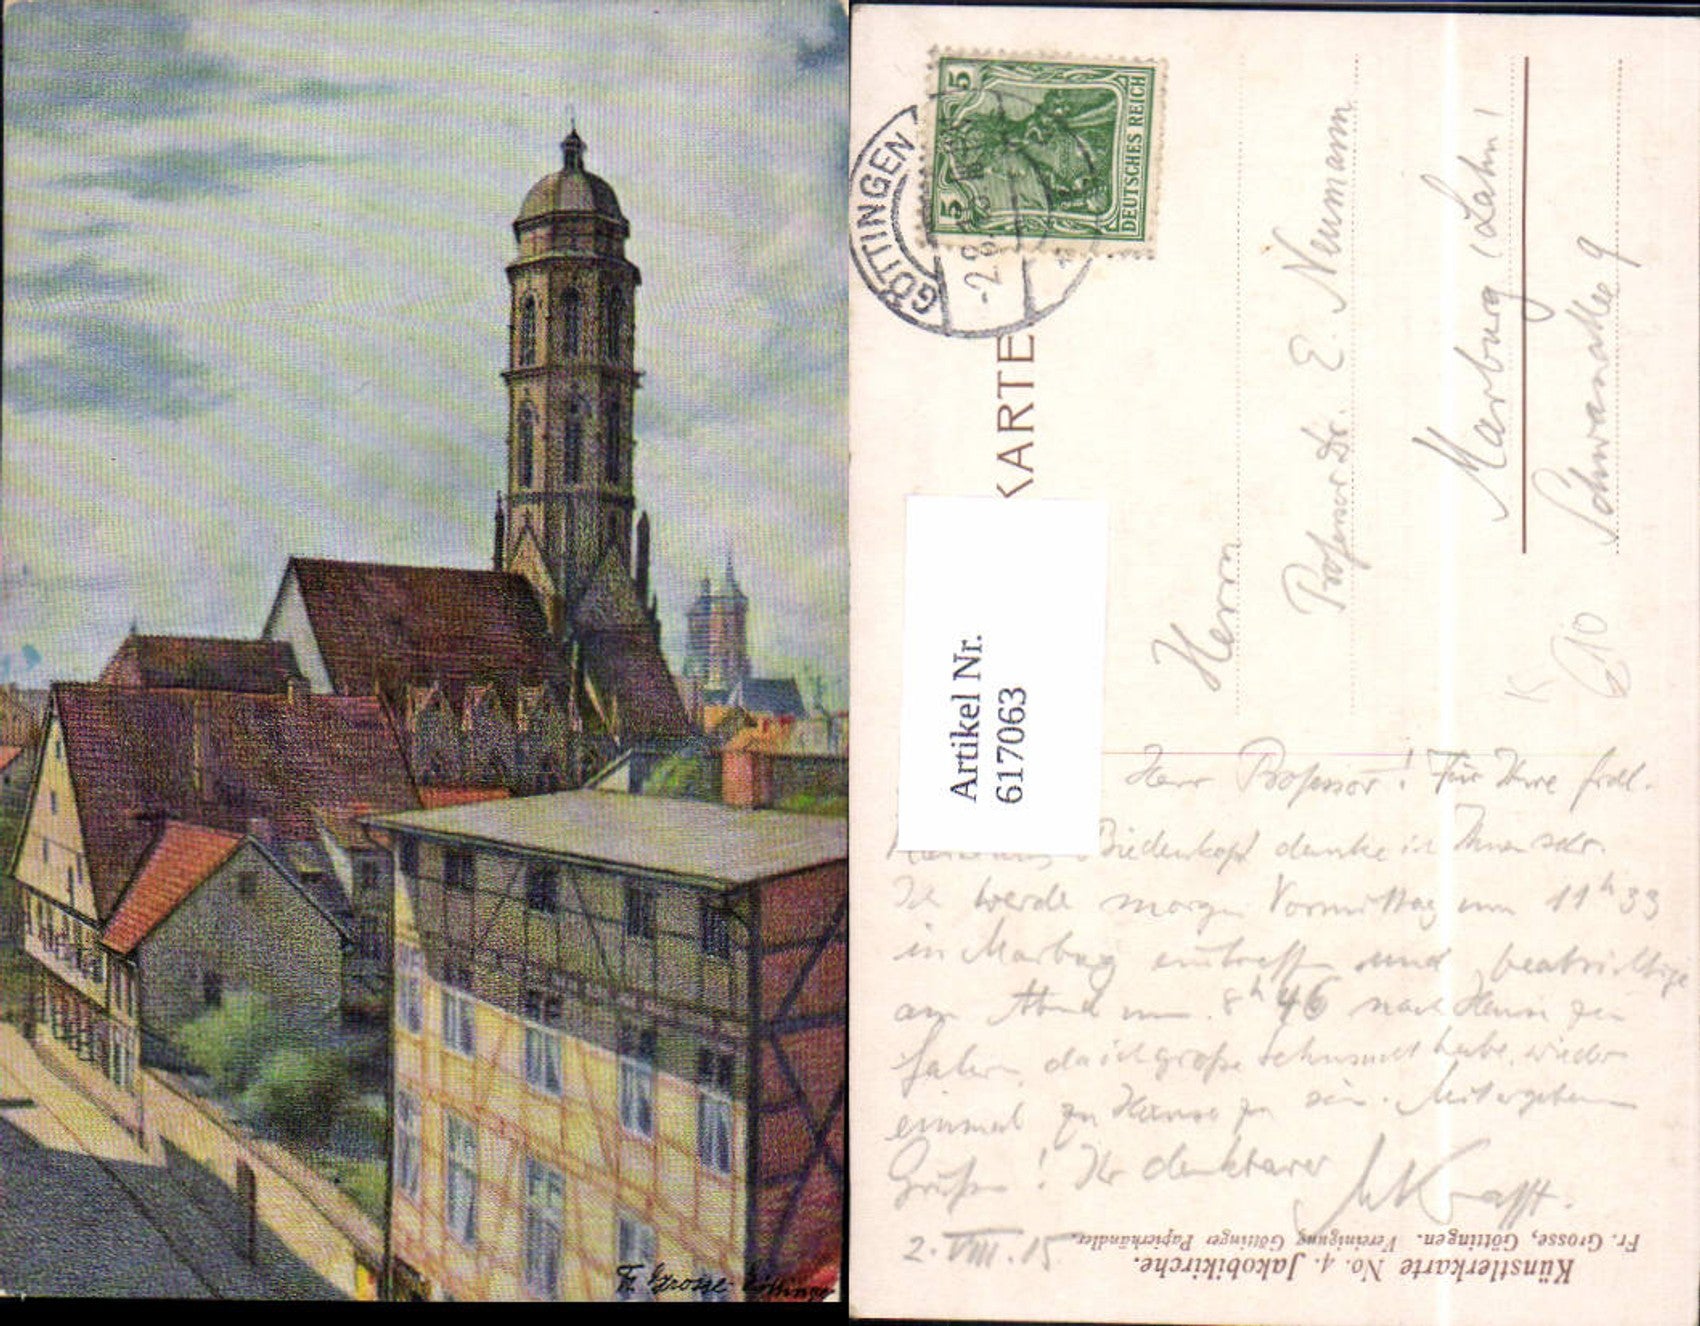 Fr. Grosse Göttingen
GÖTTINGEN
-2.8.
5 5
DEUTSCHES REICH
KARTE
Artikel Nr.
617063
Herrn
Professor Dr. E. Neumann
Marburg (Lahn)
Schwanallee 9
K
Herr Professor! Für Ihre frdl.
Biedenkopf danke ich Ihnen sehr.
Ich werde morgen Vormittag um 11h 33
in Marburg eintreffen und beabsichtige
am Abend um 8h 46 nach Hause zu
fahren, da ich große Sehnsucht habe, wieder
einmal zu Hause zu sein. Mit ergebenen
Grüßen! Ihr dankbarer
Krafft.
2. VIII. 15
Künstlerkarte No. 4. Jakobikirche.
Fr. Grosse, Göttingen. Vereinigung Göttinger Papierhändler.